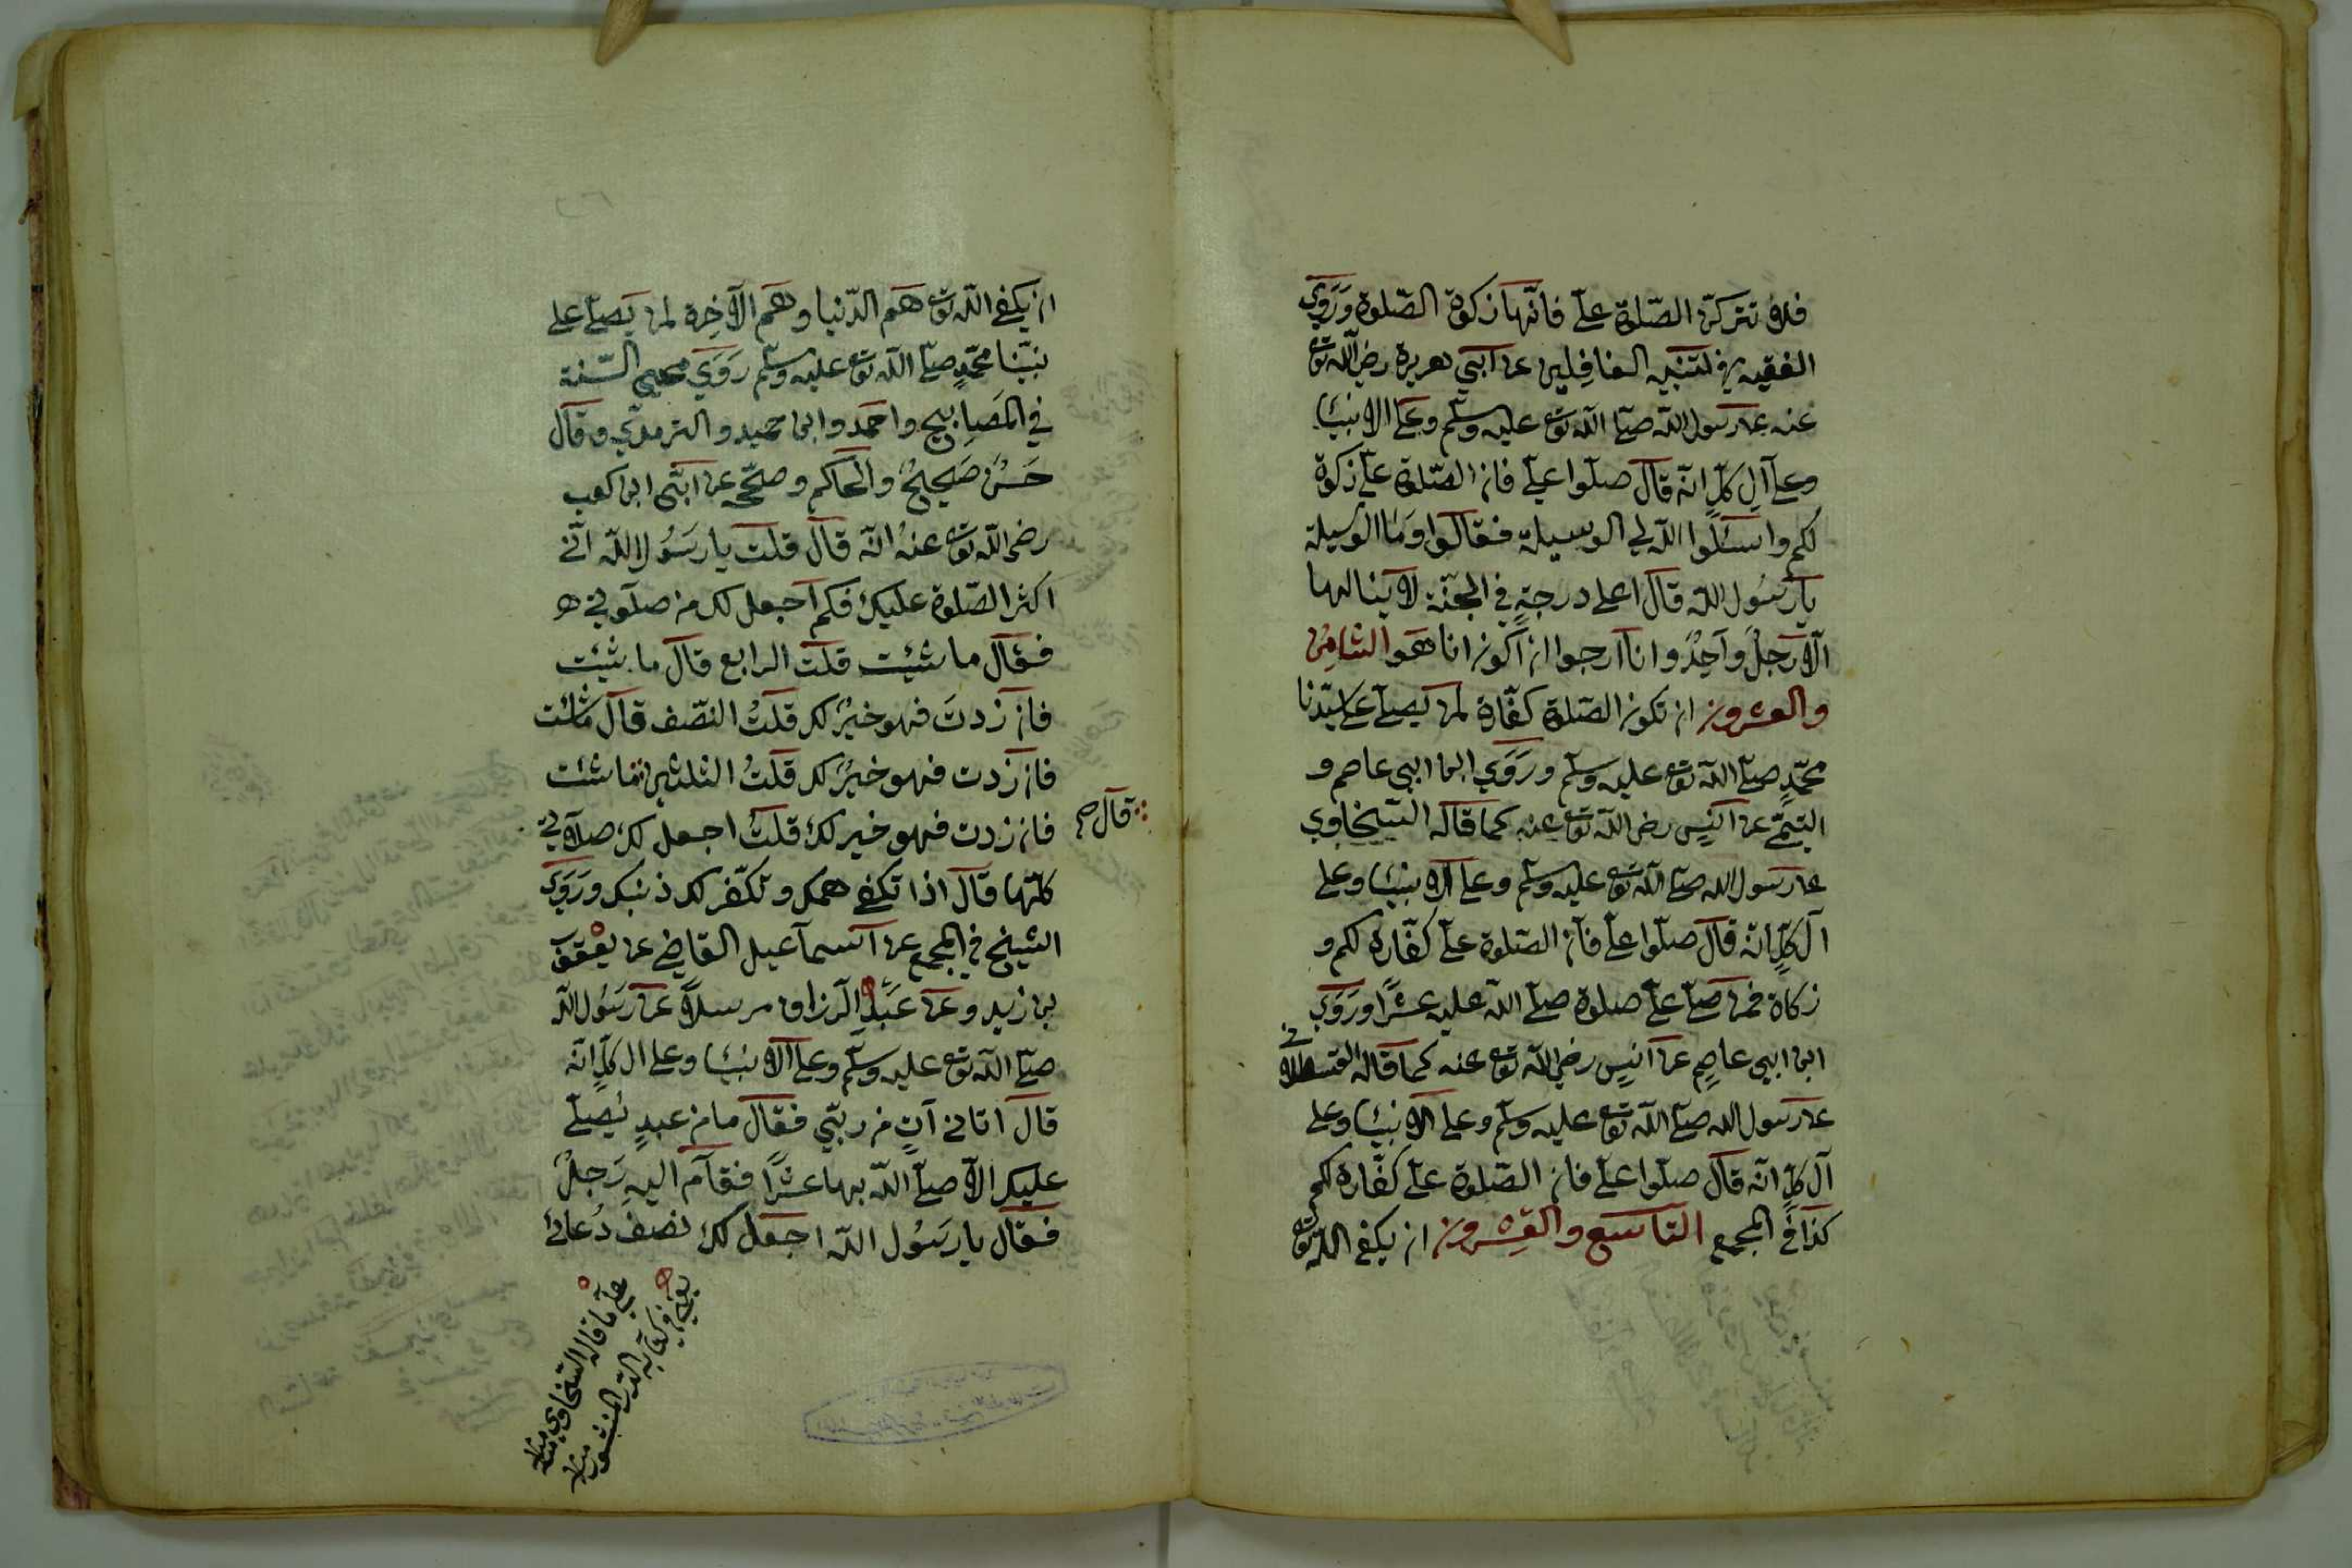 فلا تتركن الصّلوة عليّ فانّها زكوة الصّلوة وَرَوَي
الفقيه في تنبيه الغافِلين عن ابي هريرة رضي اللّه تع
عنه عن رسول اللّه صلّى اللّه تع عليه وسلّم وعلى الانبيا
وعلى آلِ كلٍّ انّه قال صلّوا عليّ فان الصّلوة عليّ زكوة
لكم واسئلوا اللّه لي الوسيلة فقالوا وَما الوسيلة
يا رسُول اللّه قال اعلى درجةٍ في الجنّة لا ينالها
الّا رجلٌ وَاحِدٌ وانا ارجوا ان اكون انا هو الثامِن
والعشرون ان تكون الصّلوة كفّارة لمن يصلّي على سيّدنا
محمّدٍ صلّى اللّه تع عليه وسلّم ورَوَي ابن ابي عاصم و
التيمّي عن انسٍ رضي اللّه تع عنه كما قاله السّخاوي
عن رسول اللّه صلّى اللّه تع عليه وسلّم وعلى الانبيا وعلى
آل كلٍّ انّه قال صلّوا عليّ فان الصّلوة عليّ كفّارة لكم و
زكاة فمن صلّى عليّ صلوة صلّى اللّه عليه عشرًا ورَوَي
ابن ابي عاصِم عن انسٍ رضي اللّه تع عنه كما قاله القسطلاني
عن رسول اللّه صلّى اللّه تع عليه وسلّم وعلى الانبيا وعلى
آل كلٍّ انّه قال صلّوا عليّ فان الصّلوة عليّ كفّارة لكم
كذا في المجمع التاسع والعِشرون ان يكفي اللّه تع
ان يكفي اللّه تع هَم الدّنيا وهَم الآخِرة لمن يصلّي على
نبيّنا محمّدٍ صلّى اللّه تع عليه وسلّم رَوَي محيي السّنة
في المصَابيح واحمَد وابن حميد والترمذي وقال
حَسَنٌ صَحِيحٌ والحاكم وصحّحه عن ابيّ ابن كعب
رضي اللّه تع عنهُ انّه قال قلت يا رسُول اللّه انّي
اكثر الصّلوة عليك فكم اجعل لك من صلوتي
فقال ما شِئت قلت الرابع قال ما شِئت
فان زدتَ فهو خيرٌ لك قلتُ النصّف قال ما شئت
فان زدت فهو خيرٌ لك قلتُ الثلثين ما شئت
قال ص
فان زدت فهو خير لك قلتُ اجعل لك صلاتي
كلّها قال اذا تكفي همك وتكفّر لك ذنبك ورَوَي
الشيخ في المجمع عن اسماعيل القاضي عن يعقوب
بن زيد وعن عَبدِ الرّزاق مرسلاً عن رسُول اللّه
صلّى اللّه تع عليه وسلّم وعلى الانبيا وعلى ال كلٍّ انّه
قال اتاني آتٍ من ربّي فقال ما من عبدٍ يُصلّي
عليك الّا صلّى اللّه بها عشرًا فقام اليهِ رَجلٌ
فقال يا رسُول اللّه اجعل لك نصف دُعائي
على ما قاله السّخاوي منه
يعني في كتابه الدّر المنثور منه